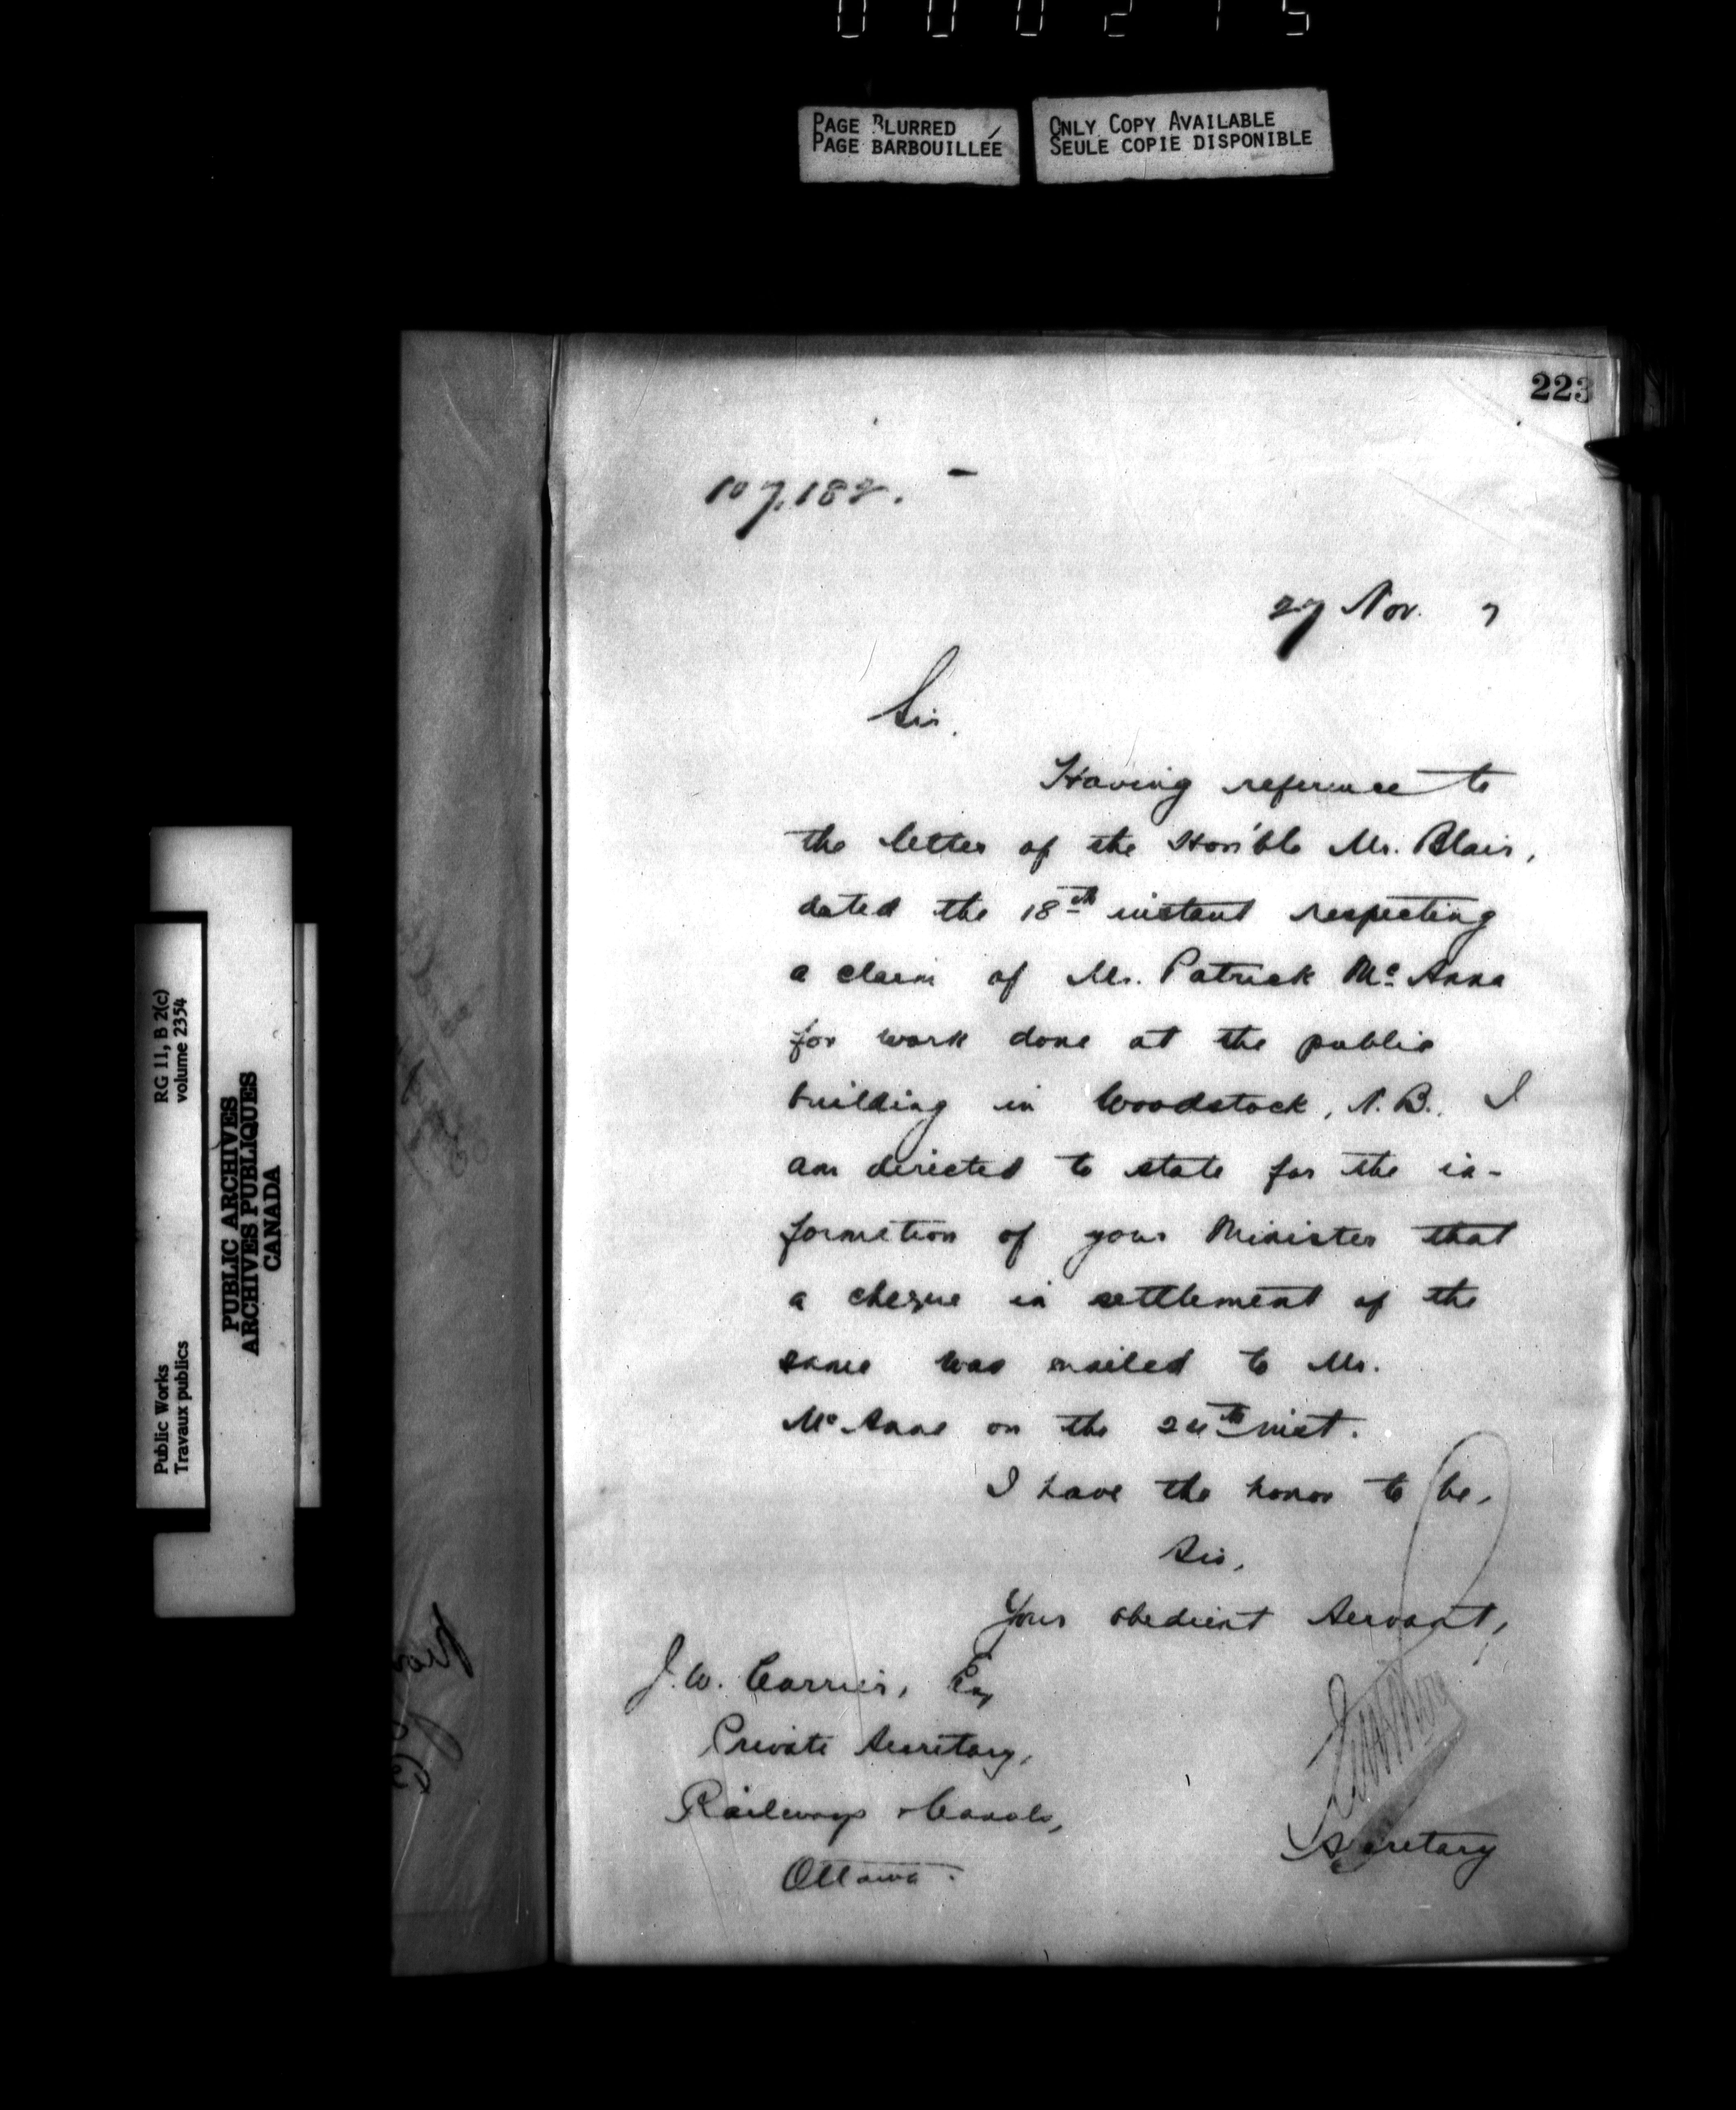 000215
PAGE BLURRED
PAGE BARBOUILLÉE
ONLY COPY AVAILABLE
SEULE COPIE DISPONIBLE
223
107,182.
27 Nov. 7
Sir,
Having reference to
the letter of the Hon'ble Mr. Blair,
dated the 18th instant respecting
a claim of Mr. Patrick Mc Anna
for work done at the public
building in Woodstock, N.B. I
am directed to state for the in-
formation of your Minister that
a cheque in settlement of the
same was mailed to Mr.
Mc Anna on the 24th inst.
I have the honor to be,
Sir,
Your obedient Servant,
J.W. Carrier, Esq
Private Secretary,
Railways & Canals,
Ottawa.
Secretary
RG 11, B 2(c)
volume 2354
Public Works
Travaux publics
PUBLIC ARCHIVES
ARCHIVES PUBLIQUES
CANADA